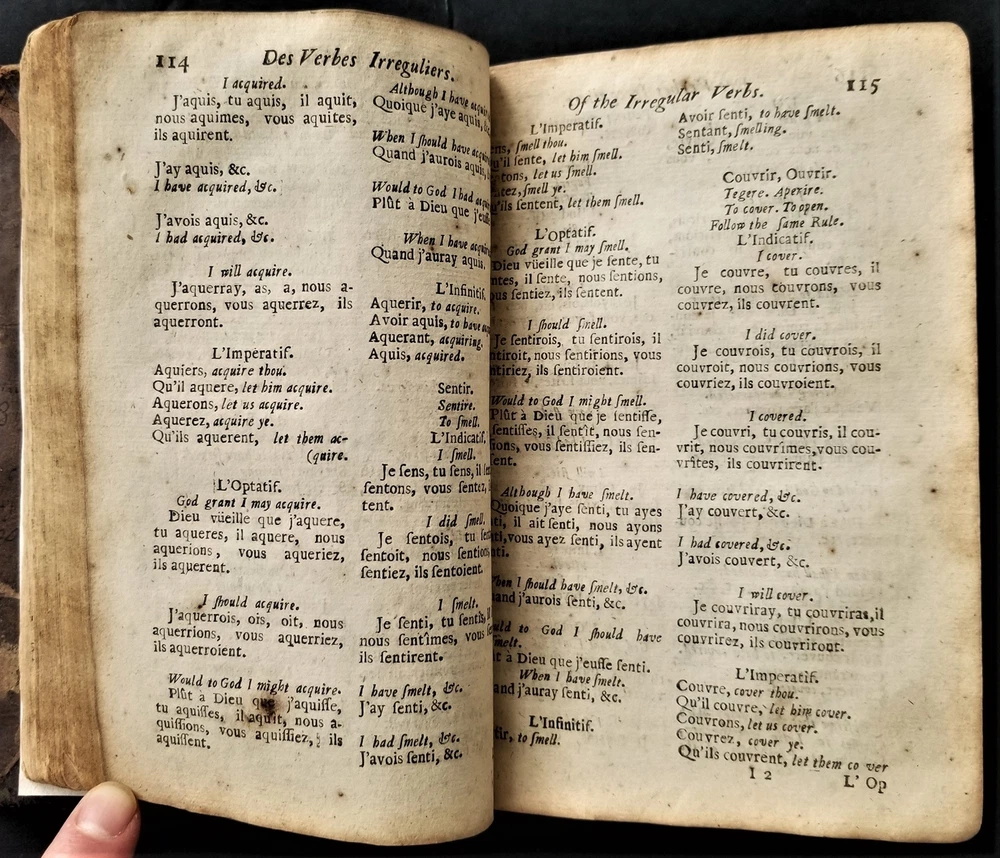 114 Des Verbes Irreguliers.
I acquired.
J'aquis, tu aquis, il aquit,
nous aquimes, vous aquites,
ils aquirent.
J'ay aquis, &c.
I have acquired, &c.
J'avois aquis, &c.
I had acquired, &c.
I will acquire.
J'aquerray, as, a, nous a-
querrons, vous aquerrez, ils
aquerront.
L'Imperatif.
Aquiers, acquire thou.
Qu'il aquere, let him acquire.
Aquerons, let us acquire.
Aquerez, acquire ye.
Qu'ils aquerent, let them ac-
(quire.
L'Optatif.
God grant I may acquire.
Dieu vüeille que j'aquere,
tu aqueres, il aquere, nous
aquerions, vous aqueriez,
ils aquerent.
I ſhould acquire.
J'aquerrois, ois, oit, nous
aquerrions, vous aquerriez,
ils aquerroient.
Would to God I might acquire.
Plût à Dieu que j'aquiſſe,
tu aquiſſes, il aquît, nous a-
quiſſions, vous aquiſſiez, ils
aquiſſent.
Although I have
Quoique j'aye aquis,
When I ſhould have
Quand j'aurois aquis,
Would to God I had
Plût à Dieu que
When I have
Quand j'auray aquis.
L'Infinitif.
Aquerir, to acquire.
Avoir aquis, to have
Aquerant, acquiring.
Aquis, acquired.
Sentir.
Sentire.
To ſmell.
L'Indicatif.
I ſmell.
Je ſens, tu ſens, il
ſentons, vous ſentez,
tent.
I did ſmell.
Je ſentois, tu
ſentoit, nous ſentions,
ſentiez, ils ſentoient.
I ſmelt.
Je ſenti, tu ſentis,
nous ſentîmes, vous
ils ſentirent.
I have ſmelt, &c.
J'ay ſenti, &c.
I had ſmelt, &c.
J'avois ſenti, &c.
Of the Irregular Verbs. 115
L'Imperatif.
ſmell thou.
ſente, let him ſmell.
let us ſmell.
ſmell ye.
ſentent, let them ſmell.
L'Optatif.
God grant I may ſmell.
Dieu vüeille que je ſente, tu
il ſente, nous ſentions,
ſentiez, ils ſentent.
I ſhould ſmell.
Je ſentirois, tu ſentirois, il
nous ſentirions, vous
ils ſentiroient.
Would to God I might ſmell.
Plût à Dieu que je ſentiſſe,
ſentiſſes, il ſentît, nous ſen-
vous ſentiſſiez, ils ſen-
Although I have ſmelt.
Quoique j'aye ſenti, tu ayes
il ait ſenti, nous ayons
vous ayez ſenti, ils ayent
When I ſhould have ſmelt, &c.
j'aurois ſenti, &c.
to God I ſhould have
ſmelt.
à Dieu que j'euſſe ſenti.
When I have ſmelt.
j'auray ſenti, &c.
L'Infinitif.
to ſmell.
Avoir ſenti, to have ſmelt.
Sentant, ſmelling.
Senti, ſmelt.
Couvrir, Ouvrir.
Tegere. Aperire.
To cover. To open.
Follow the ſame Rule.
L'Indicatif.
I cover.
Je couvre, tu couvres, il
couvre, nous couvrons, vous
couvrez, ils couvrent.
I did cover.
Je couvrois, tu couvrois, il
couvroit, nous couvrions, vous
couvriez, ils couvroient.
I covered.
Je couvri, tu couvris, il cou-
vrit, nous couvrîmes, vous cou-
vrîtes, ils couvrirent.
I have covered, &c.
J'ay couvert, &c.
I had covered, &c.
J'avois couvert, &c.
I will cover.
Je couvriray, tu couvriras, il
couvrira, nous couvrirons, vous
couvrirez, ils couvriront.
L'Imperatif.
Couvre, cover thou.
Qu'il couvre, let him cover.
Couvrons, let us cover.
Couvrez, cover ye.
Qu'ils couvrent, let them co ver
I 2 L' Op